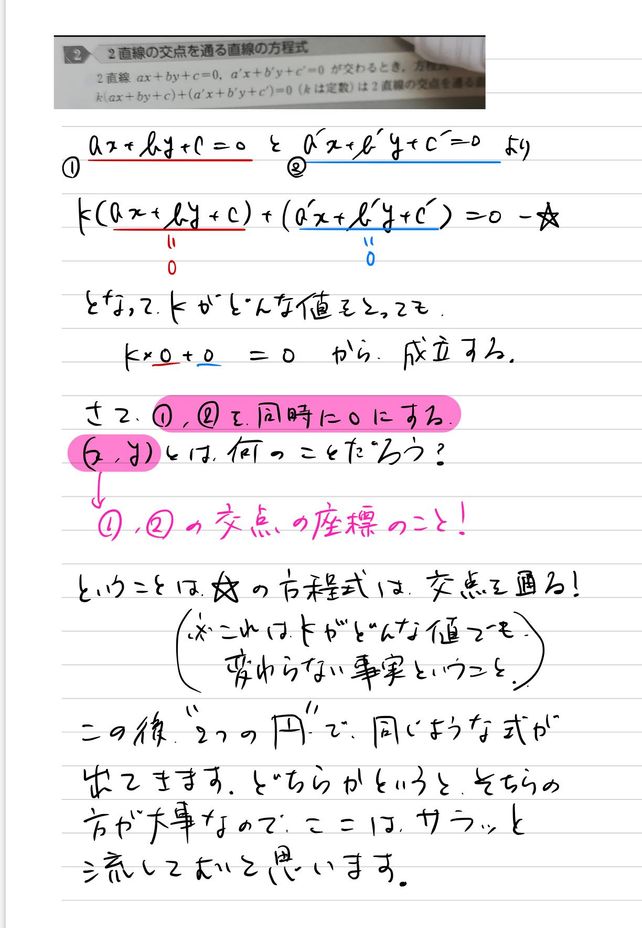 2 2直線の交点を通る直線の方程式
2直線 ax+by+c=0, a'x+b'y+c'=0 が交わるとき, 方程式
k(ax+by+c)+(a'x+b'y+c')=0 (kは定数) は2直線の交点を通る直
① ax+by+c=0 と ② a'x+b'y+c'=0 より
k(ax+by+c)+(a'x+b'y+c')=0 -☆
= =
0 0
となって、kがどんな値をとっても、
k×0+0 = 0 から、成立する。
さて、①、②を、同時に0にする、
(x, y)とは、何のことだろう?
①、②の交点の座標のこと!
ということは、☆の方程式は、交点を通る!
(※これは、kがどんな値でも、
変わらない事実ということ。)
この後、"2つの円"で、同じような式が
出てきます。どちらかというと、そちらの
方が大事なので、ここは、サラッと
流してもいいと思います。